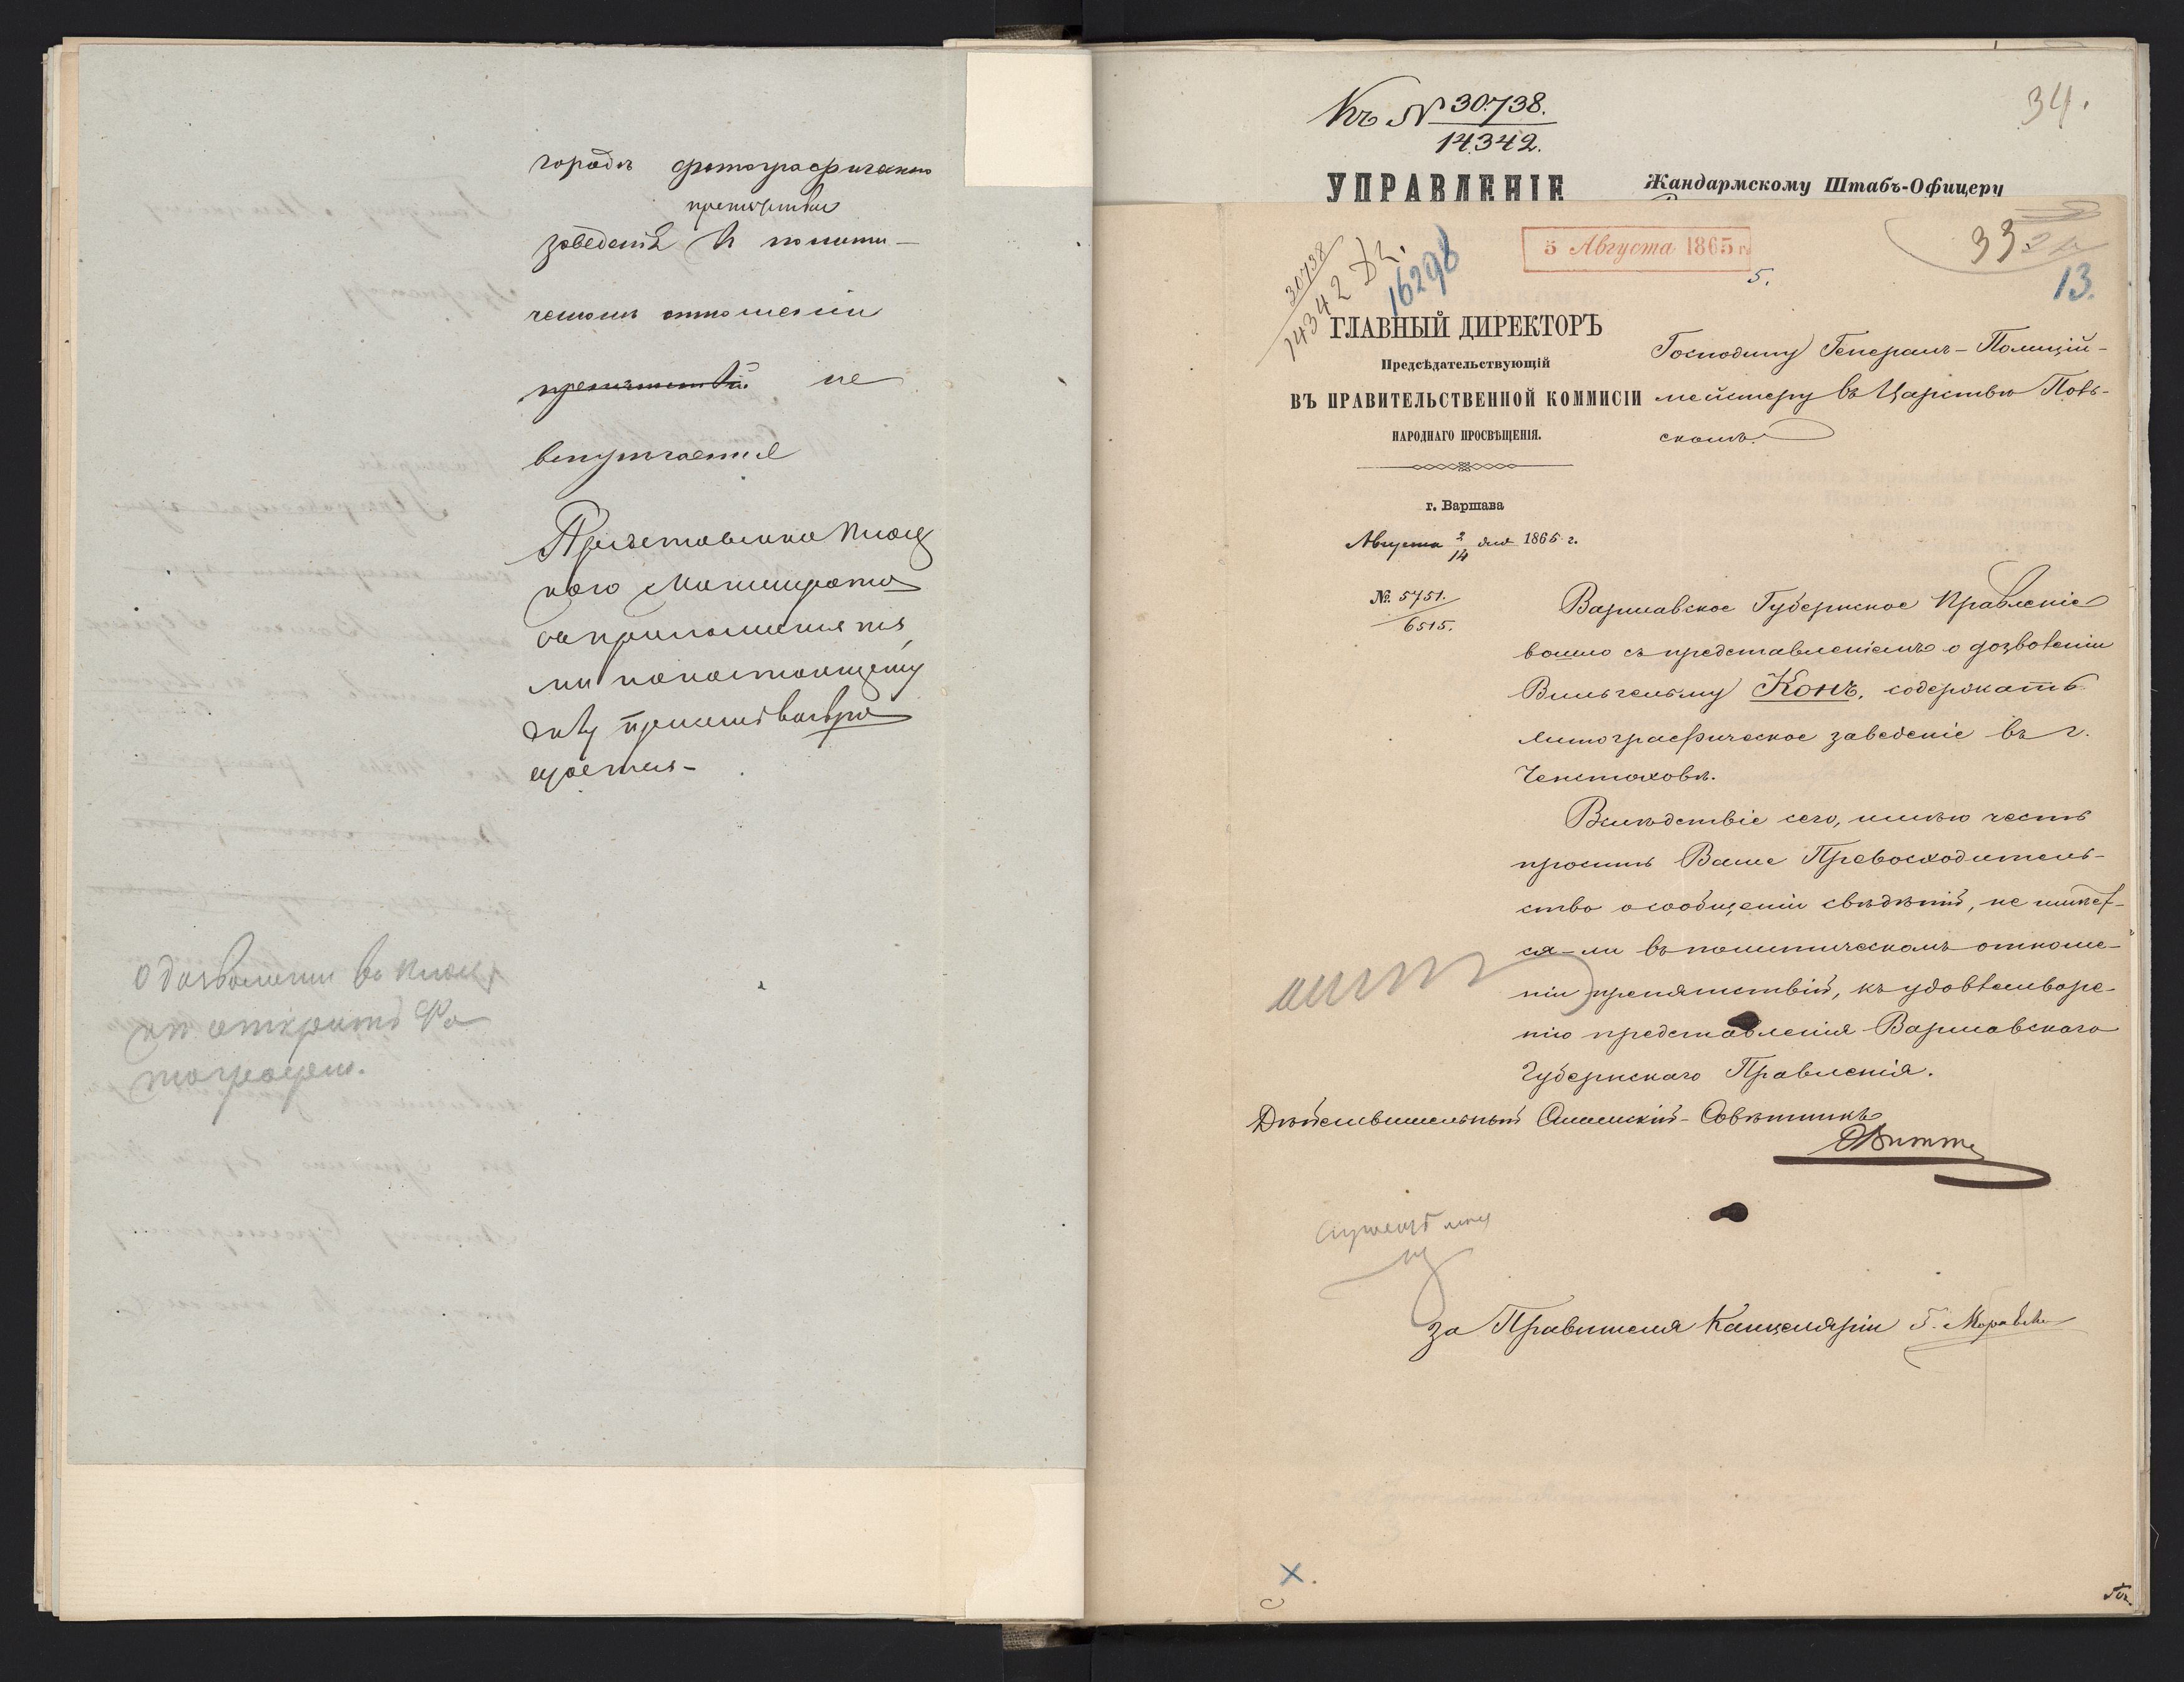 городѣ фотографическаго
препятствія
заведенія въ полити-
ческомъ отношеніи
препятствій не
встрѣчается
Представленіе
каго Магистрата
съ приложеніями
по настоящему
дѣлу при семъ возвра
щается-
О дозволеніи въ
открыть Фо
тографію.
Къ № 30738.
14342.
34.
УПРАВЛЕНІЕ
Жандармскому Штабъ-Офицеру
30738
14342
16298
5 Августа 1865 г.
5.
33
13.
ГЛАВНЫЙ ДИРЕКТОРЪ
Предсѣдательствующій
ВЪ ПРАВИТЕЛЬСТВЕННОЙ КОММИСІИ
НАРОДНАГО ПРОСВѢЩЕНІЯ.
г. Варшава
Августа 2/14 дня 1865 г.
№. 5751.
6515.
Господину Генералъ-Полицій-
мейстеру въ Царствѣ Поль-
скомъ.
Варшавское Губернское Правленіе
вошло съ представленіемъ о дозволеніи
ВильгельмуКонъ, содержать
литографическое заведеніе въ г.
Ченстоховѣ.
Вслѣдствіе сего, имѣю честь
просить Ваше Превосходитель-
ство о сообщеніи свѣдѣній, не имѣет-
ся-ли въ политическомъ отноше-
ніи препятствій, къ удовлетворе-
нію представленія Варшавскаго
Губернскаго Правленія.
Дѣйствительный Статскій Совѣтникъ
Витте
За Правителя Канцеляріи